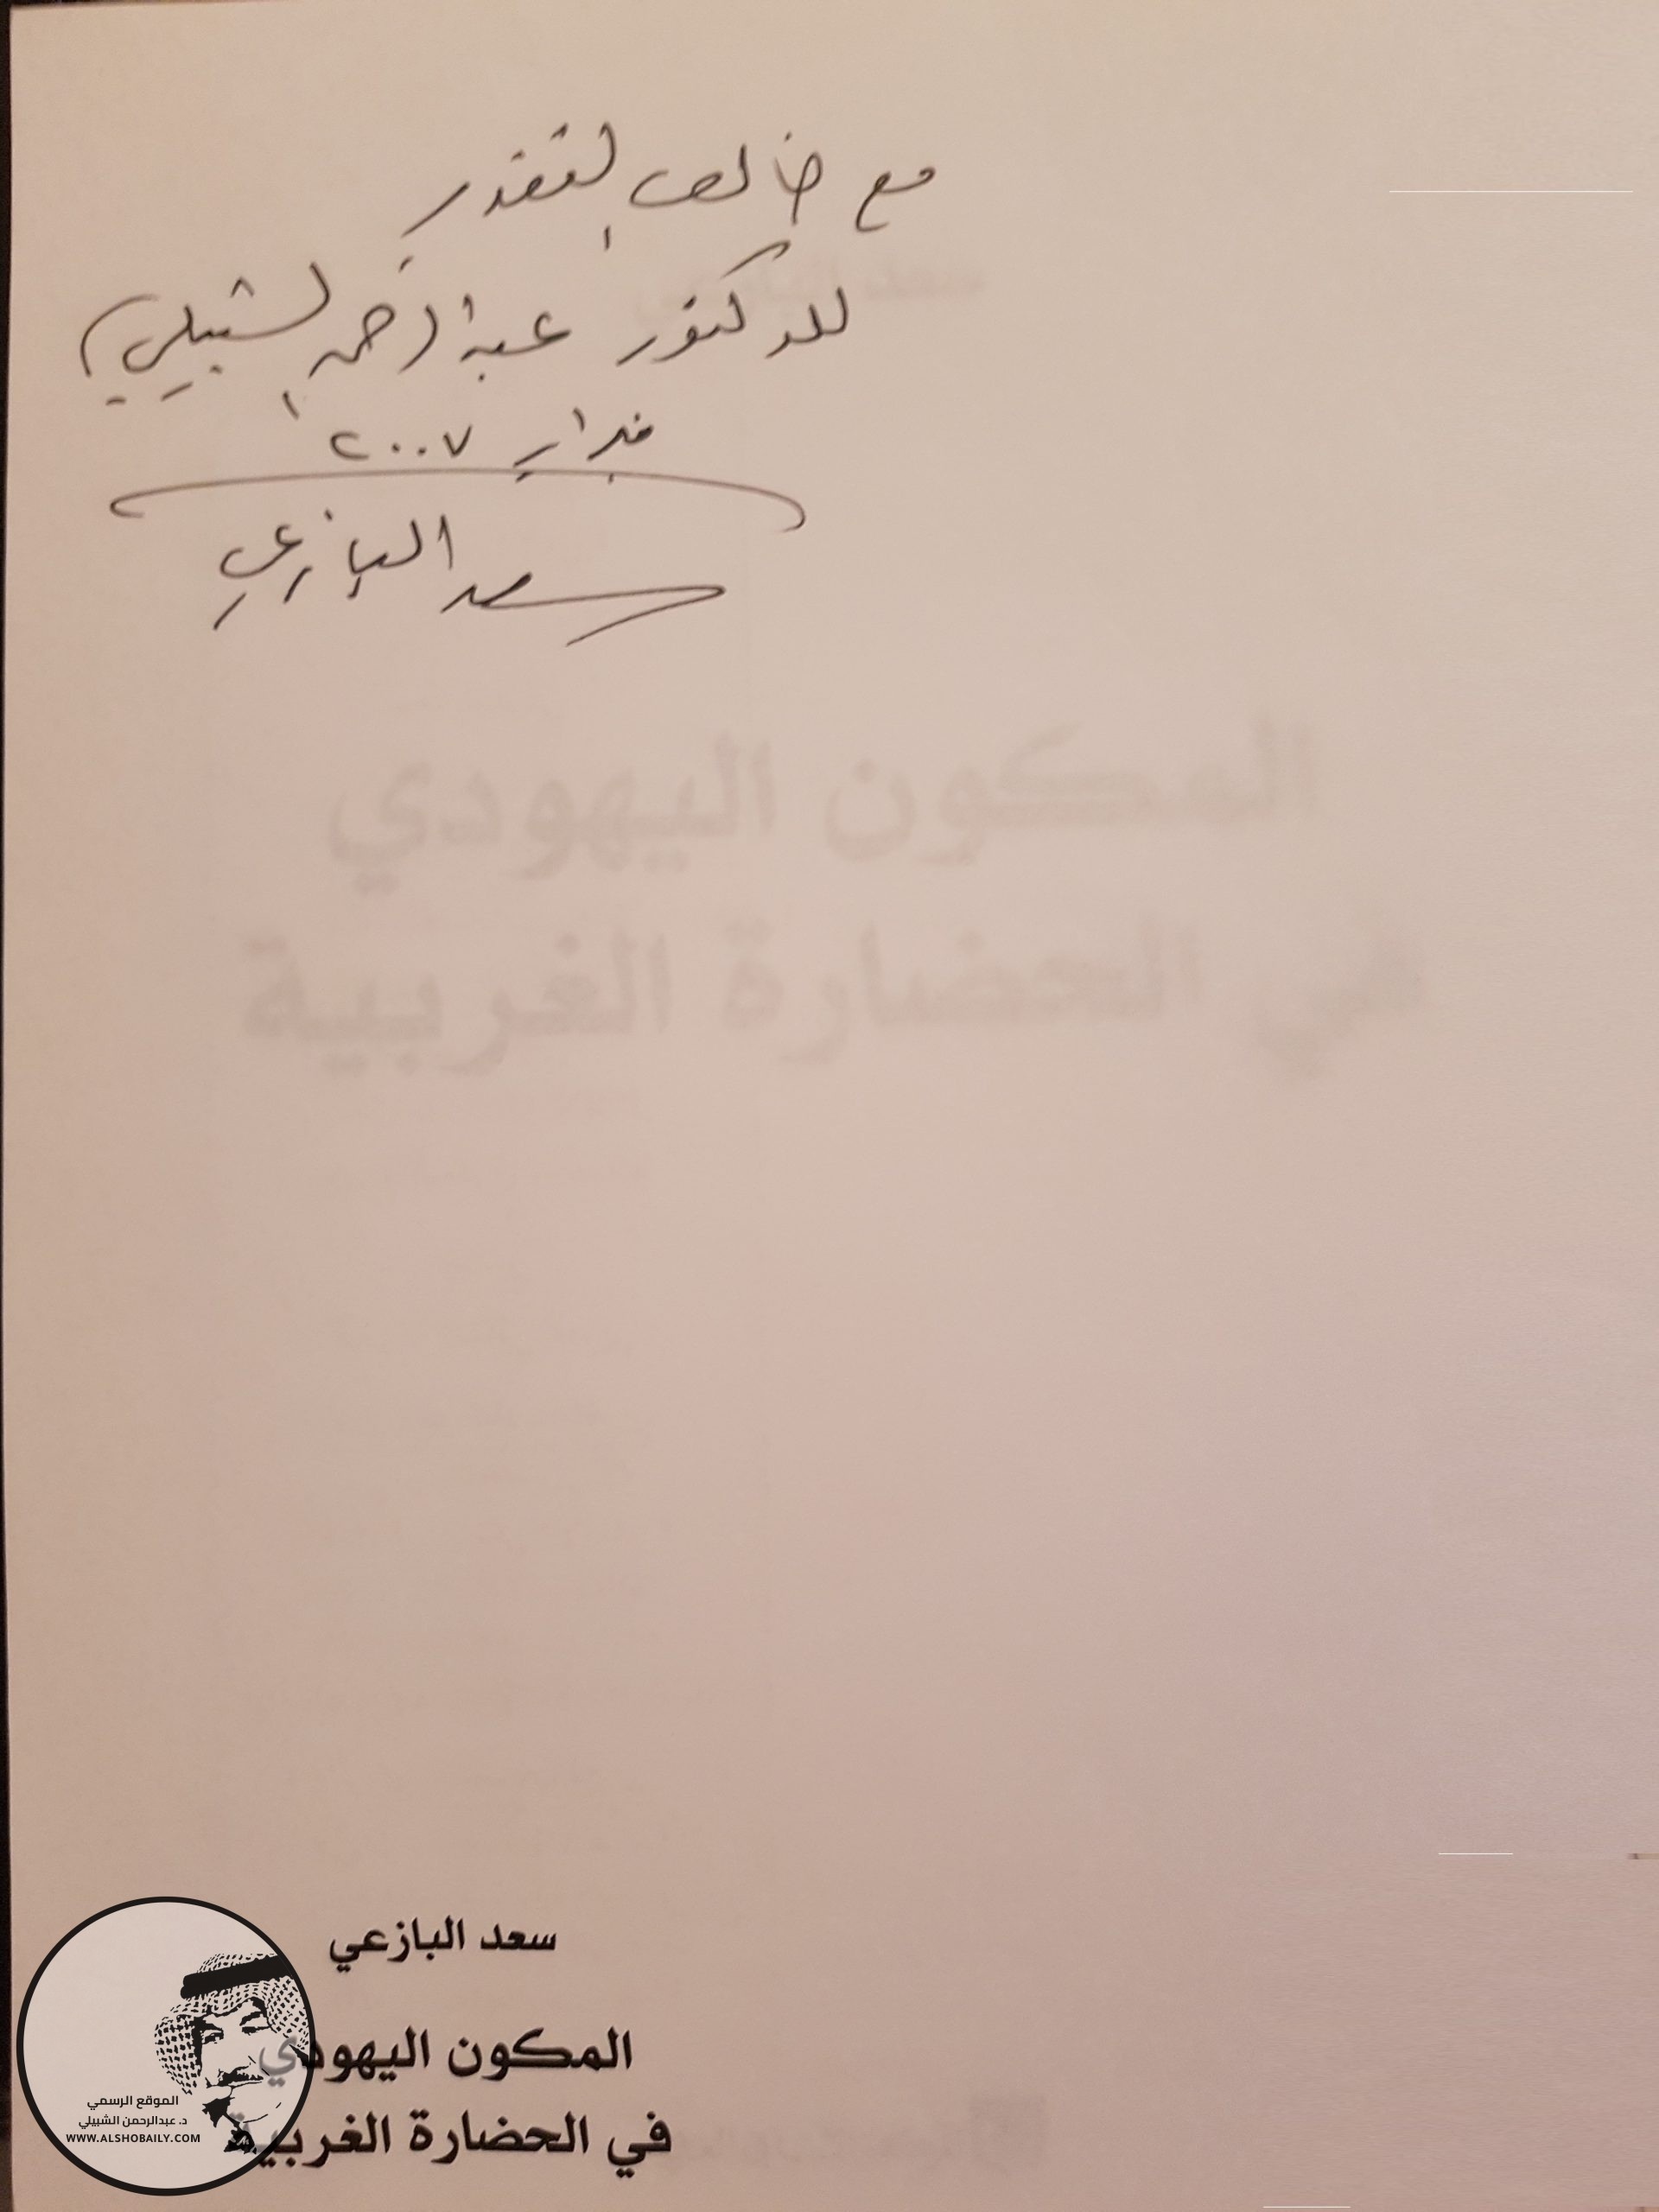 مع خالص التقدير
للدكتور عبدالرحمن الشبيلي
فبراير ٢٠٠٧
سعد البازعي
سعد البازعي
المكون اليهودي
في الحضارة الغربية
سعد البازعي
المكون اليهودي
في الحضارة الغربية
الموقع الرسمي
د. عبدالرحمن الشبيلي
WWW.ALSHOBAILY.COM